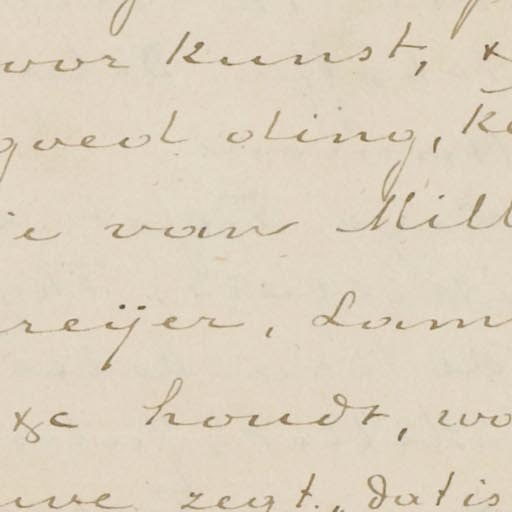 oor kunst, &
goed ding, ke
ie van Mill
reijer, Lam
&c houdt, wo
uwe zegt, dat is